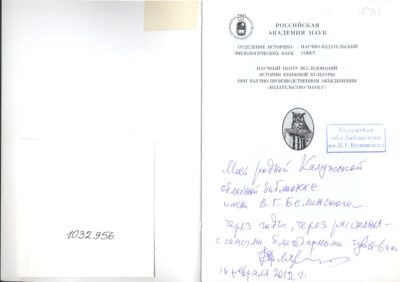 280
РОССИЙСКАЯ
АКАДЕМИЯ НАУК
ОТДЕЛЕНИЕ ИСТОРИКО-
ФИЛОЛОГИЧЕСКИХ НАУК
НАУЧНО-ИЗДАТЕЛЬСКИЙ
СОВЕТ
НАУЧНЫЙ ЦЕНТР ИССЛЕДОВАНИЙ
ИСТОРИИ КНИЖНОЙ КУЛЬТУРЫ
ПРИ НАУЧНО-ПРОИЗВОДСТВЕННОМ ОБЪЕДИНЕНИИ
«ИЗДАТЕЛЬСТВО "НАУКА"»
Калужская
обл.библиотека
им.В.Г.Белинского
Моей родной Калужской
областной библиотеке
имени В.Г. Белинского
через годы, через расстоянья –
с самыми благодарными чувствами
16 февраля 2012 г.
1032956